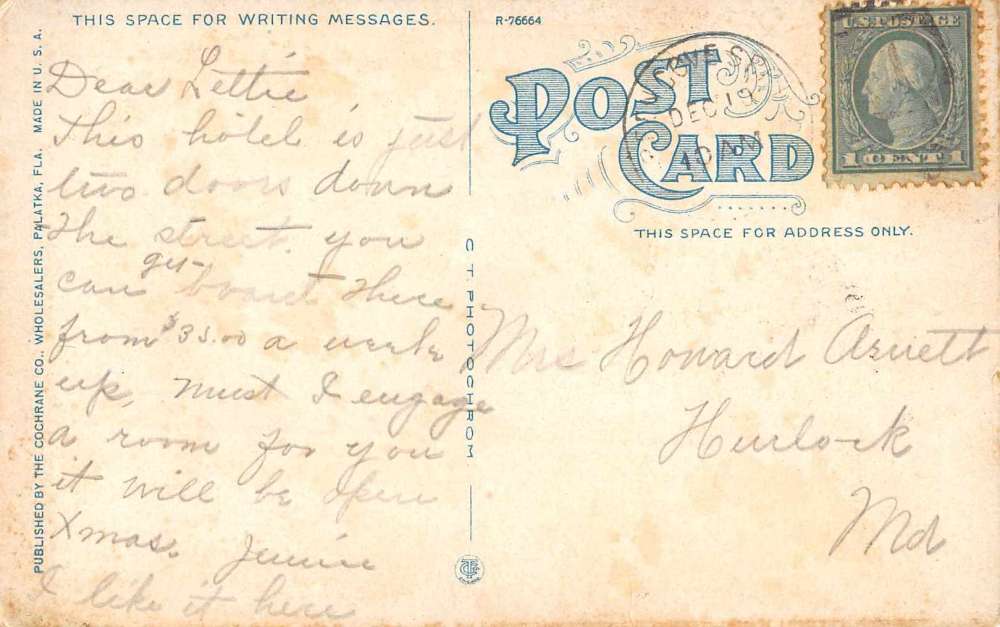 THIS SPACE FOR WRITING MESSAGES.
R-76664
Dear Lettie
This hotel is just
two doors down
the street you
can get board there
from $35.00 a week
up, must I engage
a room for you
it will be open
Xmas. Jennie
I like it here
PUBLISHED BY THE COCHRANE CO., WHOLESALERS, PALATKA, FLA. MADE IN U.S.A.
C T PHOTOCHROM
POST CARD
COVE SP
DEC 19
10 AM
U.S. POSTAGE
1 CENT 1
THIS SPACE FOR ADDRESS ONLY.
Mrs Howard Arnett
Hurlock
Md